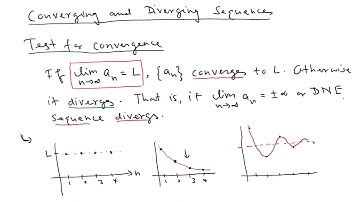 Converging and Diverging Sequences
Test for convergence
If lim n→∞ an = L , {an} converges to L. Otherwise
it diverges. That is, if lim n→∞ an = ±∞ or DNE
sequence divergs.
L
1 2 3 4 n
1 2 3 4